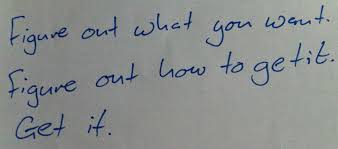 Figure out what you want.
Figure out how to get it.
Get it.